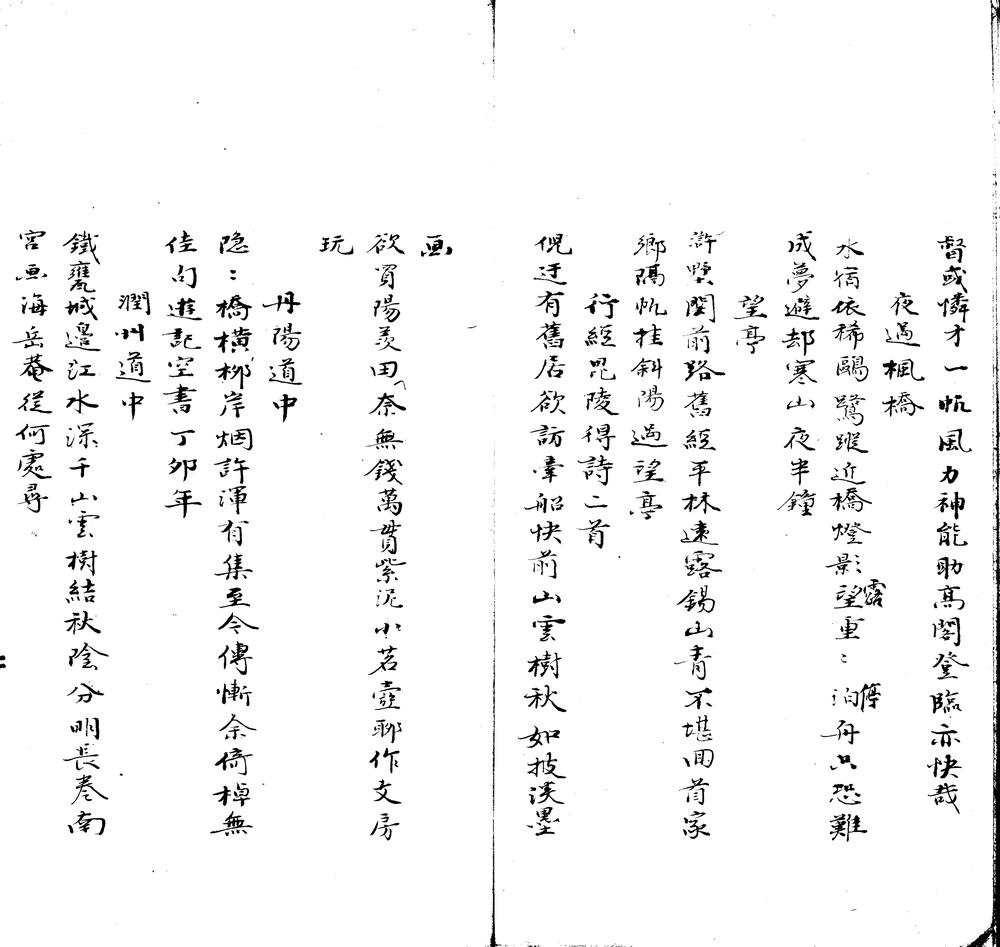 督或憐才一帆風力神能助髙閣登臨亦快哉
夜過楓橋
水宿依稀鷗鷺蹤近橋燈影望重〻泊舟只恐難
露
停
成夢避却寒山夜半鐘
望亭
滸墅関前路舊經平林遠露錫山青不堪回首家
鄉隔帆挂斜陽過望亭
行經毘陵得詩二首
倪迂有舊居欲訪牽船快前山雲樹秋如披淡墨
画
欲買陽羨田奈無錢萬貫紫泥小茗壺聊作文房
玩
丹陽道中
隐〻橋橫柳岸烟許渾有集至今傳慚余倚棹無
佳句遊記空書丁夘年
潤州道中
鐵甕城邊江水深千山雲樹結秋陰分明長卷南
宮画海岳菴從何處尋